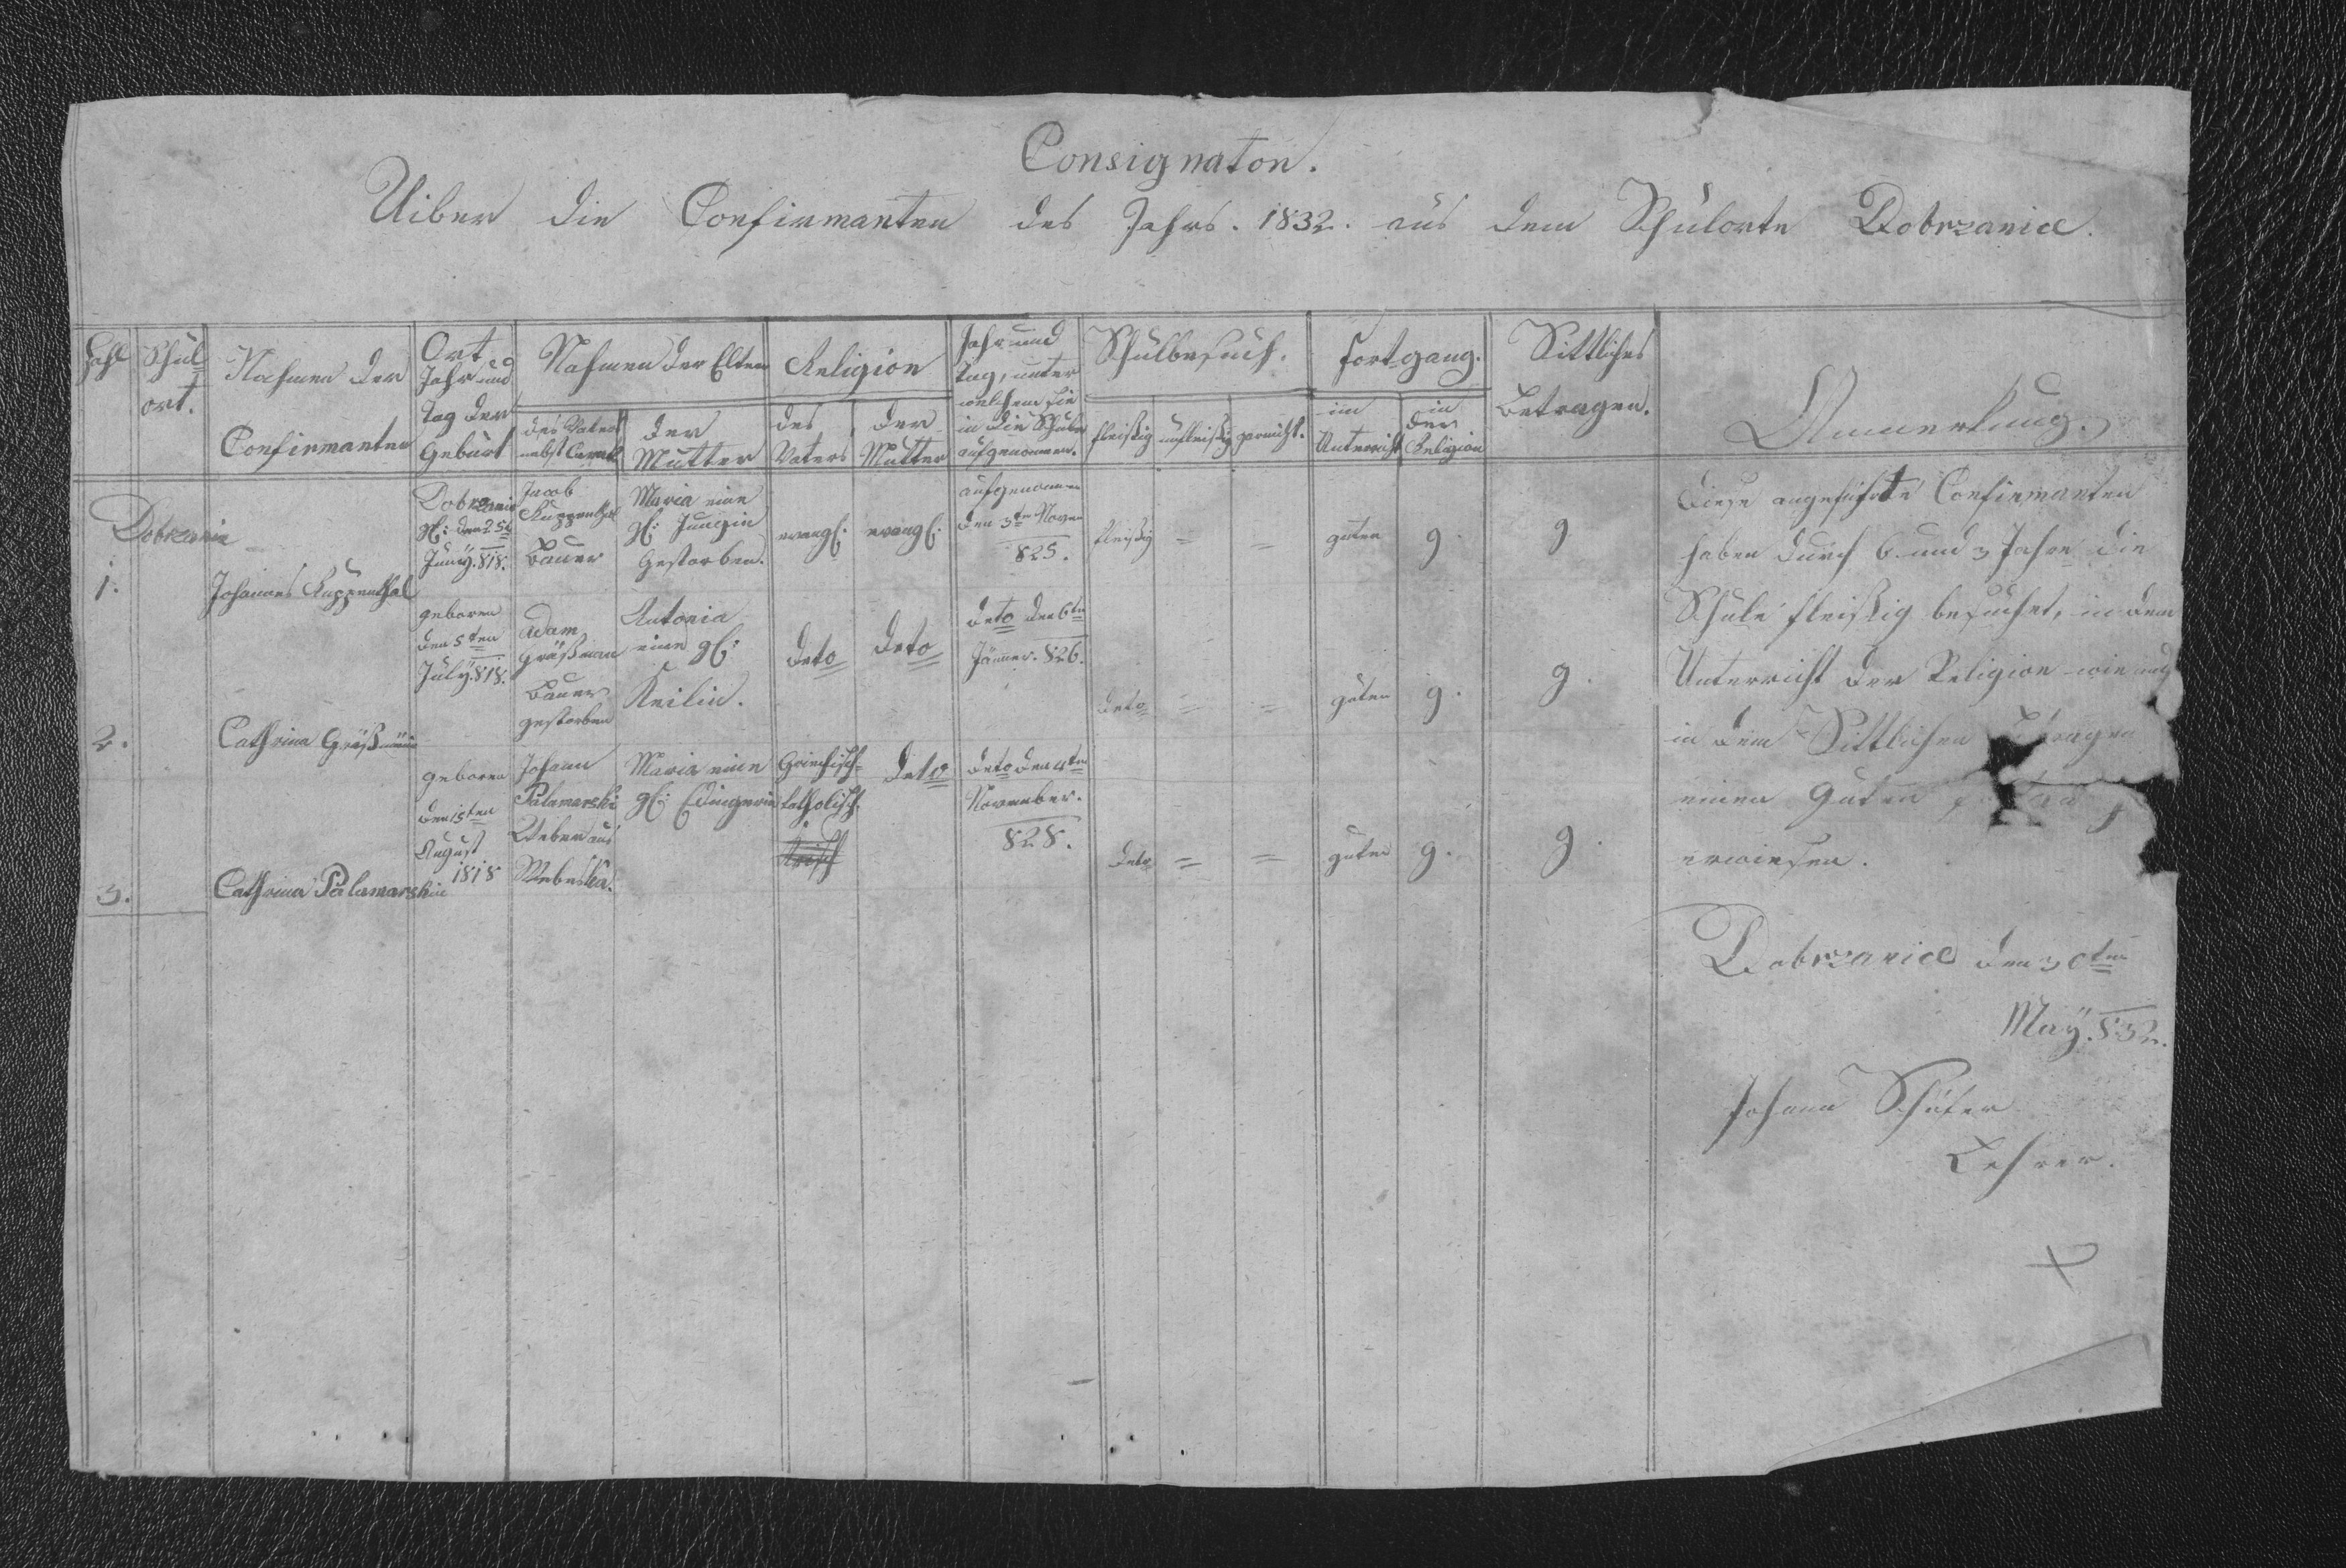 Consignaton.
Uiber die Confirmanten des Jahrs. 1832. aus dem Schulorte Dobrzanice.
Zahl
Schul
ort.
Nahmen der
Confirmanten
Ort
Jahr und
Tag der
Geburt
Nahmen der Eltern
des Vaters
nebst
der
Mutter
Religion
des
Vaters
der
Mutter
Jahr und
Tag, unter
welchem sie
in die Schule
aufgenommen.
Schulbesuch.
fleißig
unfleißig
garnicht.
Fortgang.
im
Unterricht
in
der
Religion
Sittliches
Betragen.
Anmerkung.
Dobrzanice
1.
Johannes Kuppenthal
Dobrzanice
gb: den 25t
Juny. 818.
Jacob
Kuppenthal
Bauer
Maria eine
gb: Jungin
Gestorben.
evangl:
evangl:
aufgenommen
den 3ten Novem
825.
fleißig
=
=
guten
g.
g
2.
Cathrina Gräßmänin
geboren
den 5ten
July. 818.
Adam
Gräßman
Bauer
gestorben
Antonia
eine gb:
Keilin.
deto
deto
deto den 6tn
Jänner. 826.
deto
=
=
guten
g.
g.
3.
Cathrina Palamarskin
geboren
den 15ten
August
1818
Johann
Palamarski
Weber aus
Maria eine
gb: Edingerin
Griechisch-
katholisch
deto
deto den 4ten
November.
828.
deto
=
=
guten
g.
g.
Diese angeführte Confirmanten
haben durch 6. und 3 Jahre die
Schule fleißig besuchet, in dem
Unterricht der Religion wie auch
in dem Sittlichen Betragen
einen Guten
erwiesen.
Dobrzanice den 30ten
May. 832.
Johann Schäfer
Lehrer.